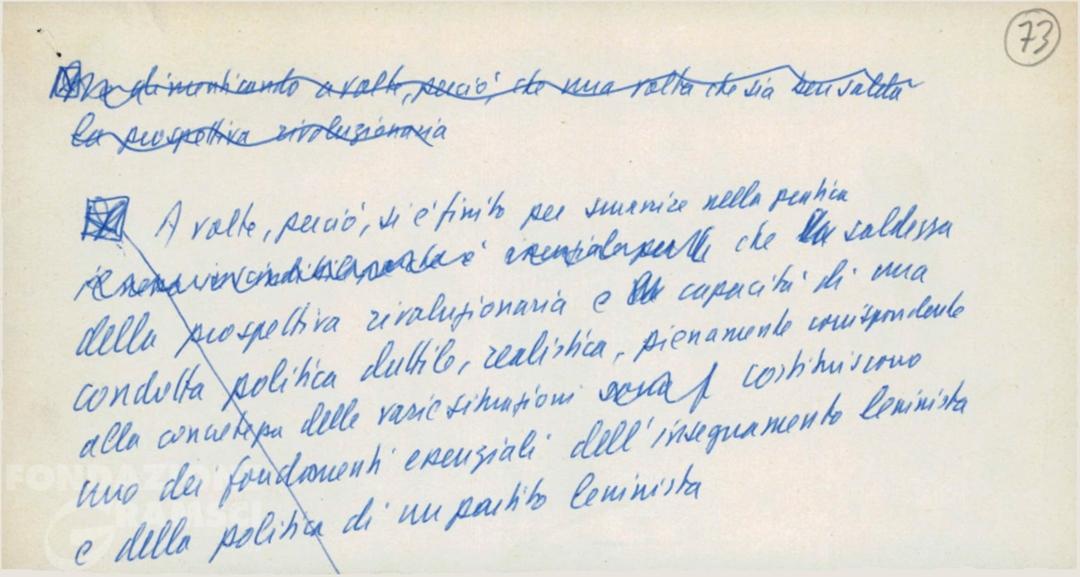 73
dimenticando a volte, perciò, che una volta che sia ben salda
la prospettiva rivoluzionaria
A volte, perciò, si è finito per smarrire nella pratica
che la saldezza
della prospettiva rivoluzionaria e la capacità di una
condotta politica duttile, realistica, pienamente corrispondente
alla concretezza delle varie situazioni costituiscono
uno dei fondamenti essenziali dell'insegnamento leninista
e della politica di un partito leninista
FONDAZIONE
GRAMSCI